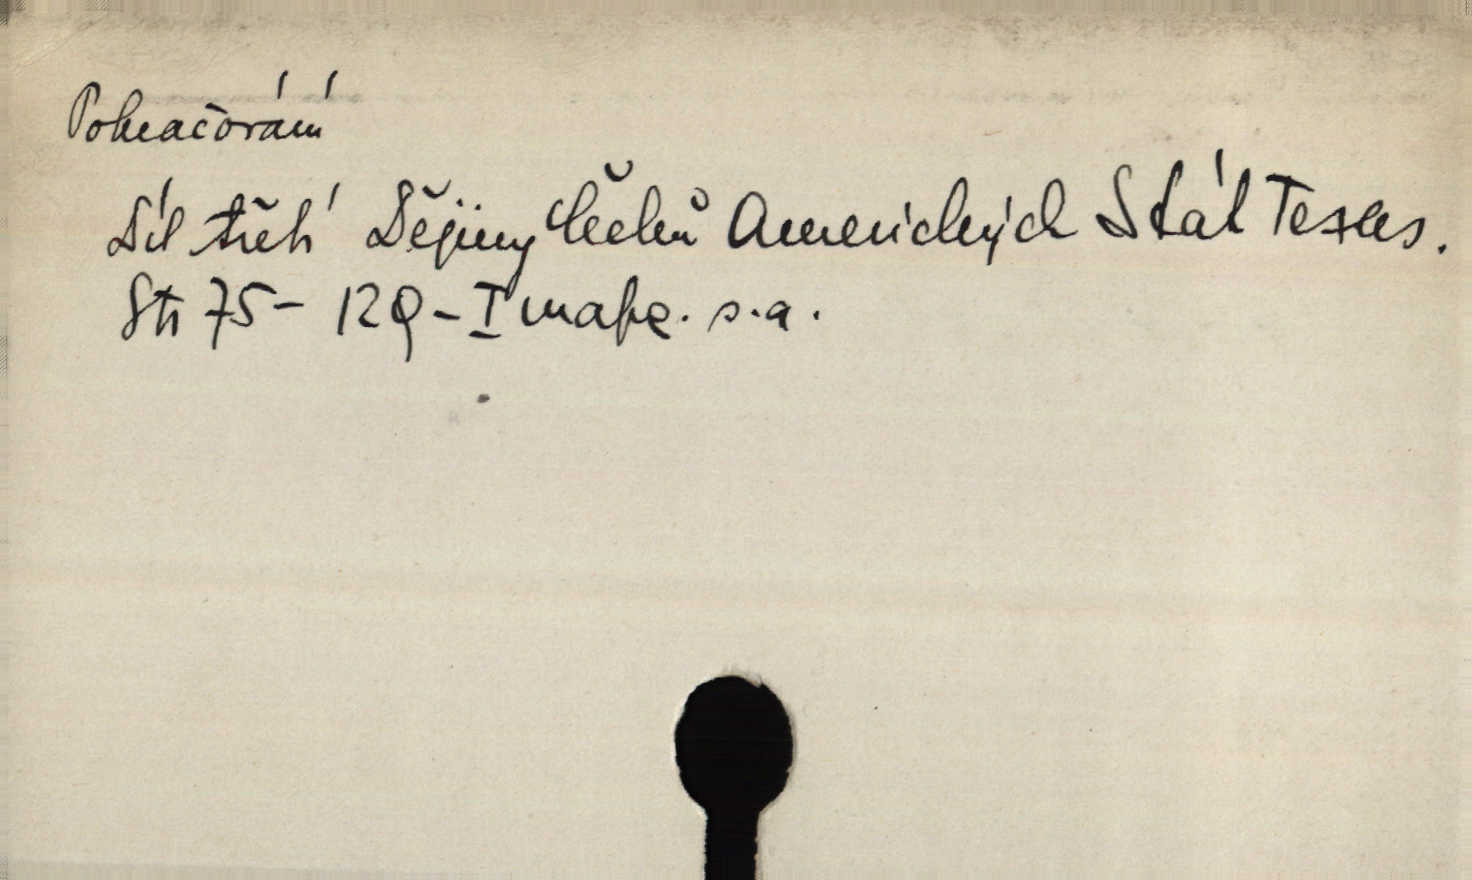 Pokračování
Díl třetí Dějiny Čechů Amerických Stát Texas.
Str 75- 129-I mapa. s.a.